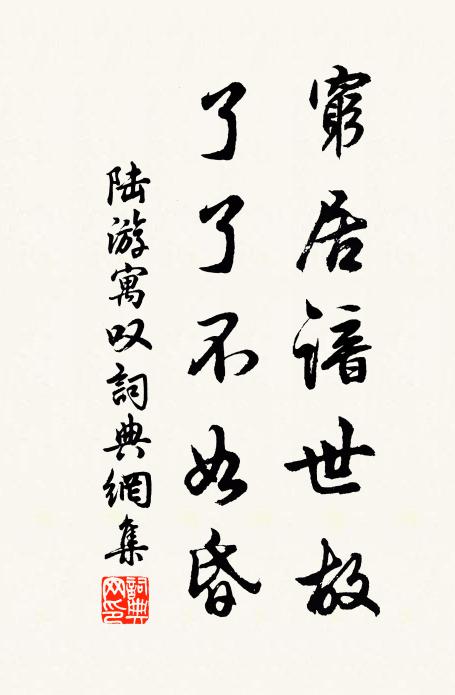 窮居諳世故
了了不如昏
陆游寓叹詞典網集
詞典网印